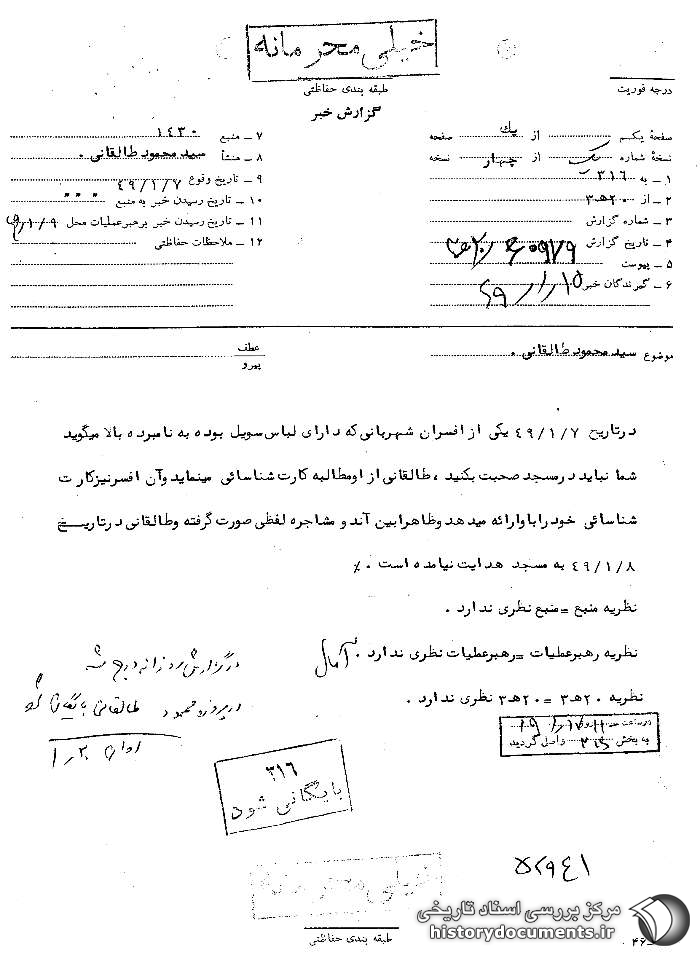 خیلی محرمانه
درجه فوریت
طبقه بندی حفاظتی
گزارش خبر
صفحهٔ یکم از یک صفحه
نسخهٔ شماره یک از چهار نسخه
۱ ـ به ۳۱۶
۲ ـ از ۲۰هـ۳
۳ ـ شماره گزارش
۴ ـ تاریخ گزارش
۵ ـ پیوست
۶ ـ گیرندگان خبر
۷ ـ منبع ۱۴۳۰
۸ ـ منشأ سید محمود طالقانی .
۹ ـ تاریخ وقوع ۴۹/۱/۷
۱۰ ـ تاریخ رسیدن خبر به منبع ۰۰۰
۱۱ ـ تاریخ رسیدن خبر برهبر عملیات محل ۴۹/۱/۹
۱۲ ـ ملاحظات حفاظتی
موضوع سید محمود طالقانی .
عطف
پیرو
در تاریخ ۴۹/۱/۷ یکی از افسران شهربانی که دارای لباس سویل بوده به نامبرده بالا میگوید
شما نباید در مسجد صحبت بکنید ، طالقانی از او مطالبه کارت شناسائی مینماید و آن افسر نیز کارت
شناسائی خود را باو ارائه میدهد و ظاهرا بین آندو مشاجره لفظی صورت گرفته و طالقانی در تاریخ
۴۹/۱/۸ به مسجد هدایت نیامده است . ٪
نظریه منبع = منبع نظری ندارد .
نظریه رهبر عملیات = رهبر عملیات نظری ندارد .
نظریه ۲۰هـ۳ = ۲۰هـ۳ نظری ندارد .
در گزارش روزانه درج شد
در پرونده محمود طالقانی بایگانی شود
به بخش ۳۱۶ واصل گردید
۳۱۶
بایگانی شود
خیلی محرمانه
طبقه بندی حفاظتی
مرکز بررسی اسناد تاریخی
historydocuments.ir